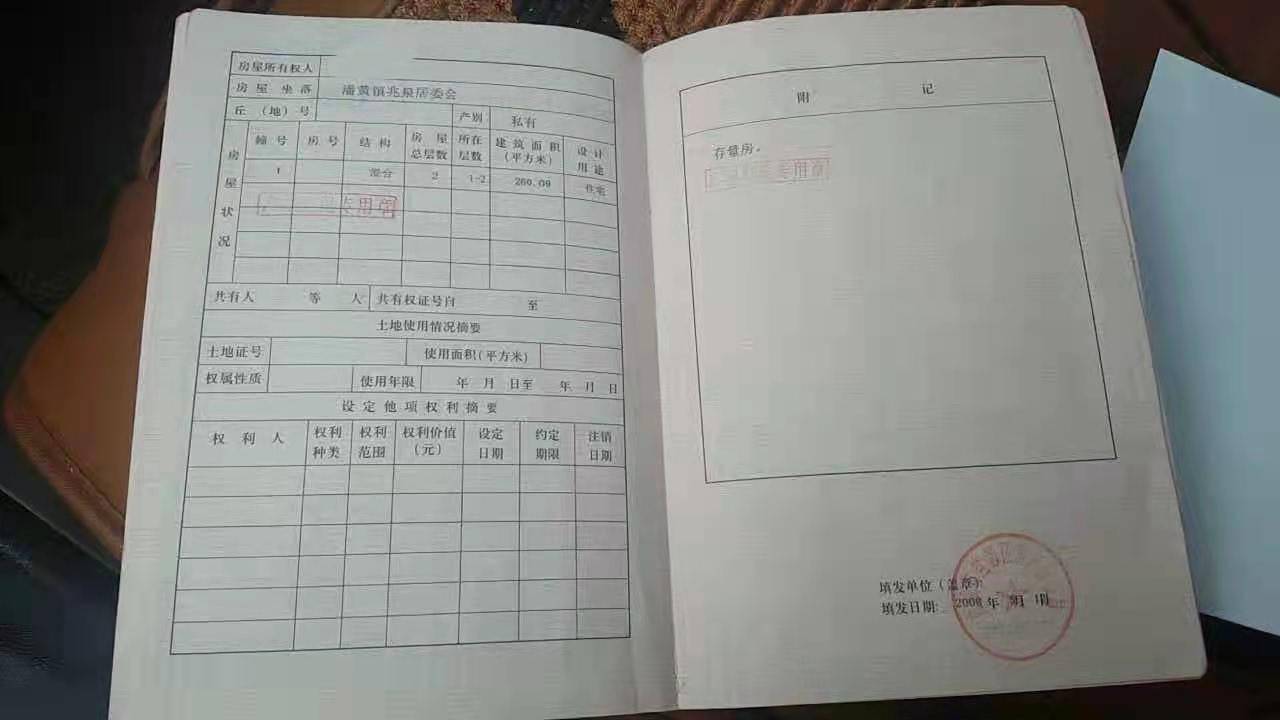 房屋所有权人
房屋坐落 潘黄镇兆泉居委会
丘(地)号 产别 私有
房屋状况
幢号 房号 结构 房屋总层数 所在层数 建筑面积(平方米) 设计用途
1 混合 2 1-2 260.09 住宅
专用章
共有人 等 人 共有权证号自 至
土地使用情况摘要
土地证号 使用面积(平方米)
权属性质 使用年限 年 月 日至 年 月 日
设定他项权利摘要
权利人 权利种类 权利范围 权利价值(元) 设定日期 约定期限 注销日期
附 记
存量房。
专用章
填发单位(盖章):
填发日期: 年 月 日